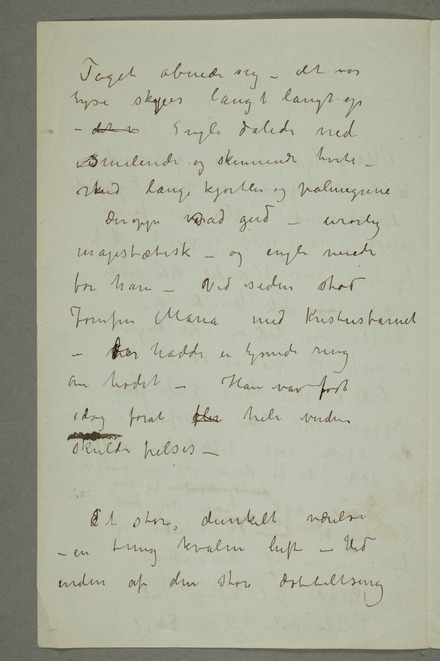 Taget åbnede sig – det var
lyse skyer langt langt op
– Engle dalede ned
Smilende og skinnende hvite –
med lange kjortler og palmegrene
Deroppe sad gud – urorlig
majestætisk – og engle neiede
for ham – Ved siden stod
Jomfru Maria med Kristusbarnet
– han hadde en lysende ring
om hodet – Han var født
idag forat hele verden
skulde frelses –
Et stort, dunkelt værelse
– en tung kvalm luft – Ved
enden af den store dobbeltseng